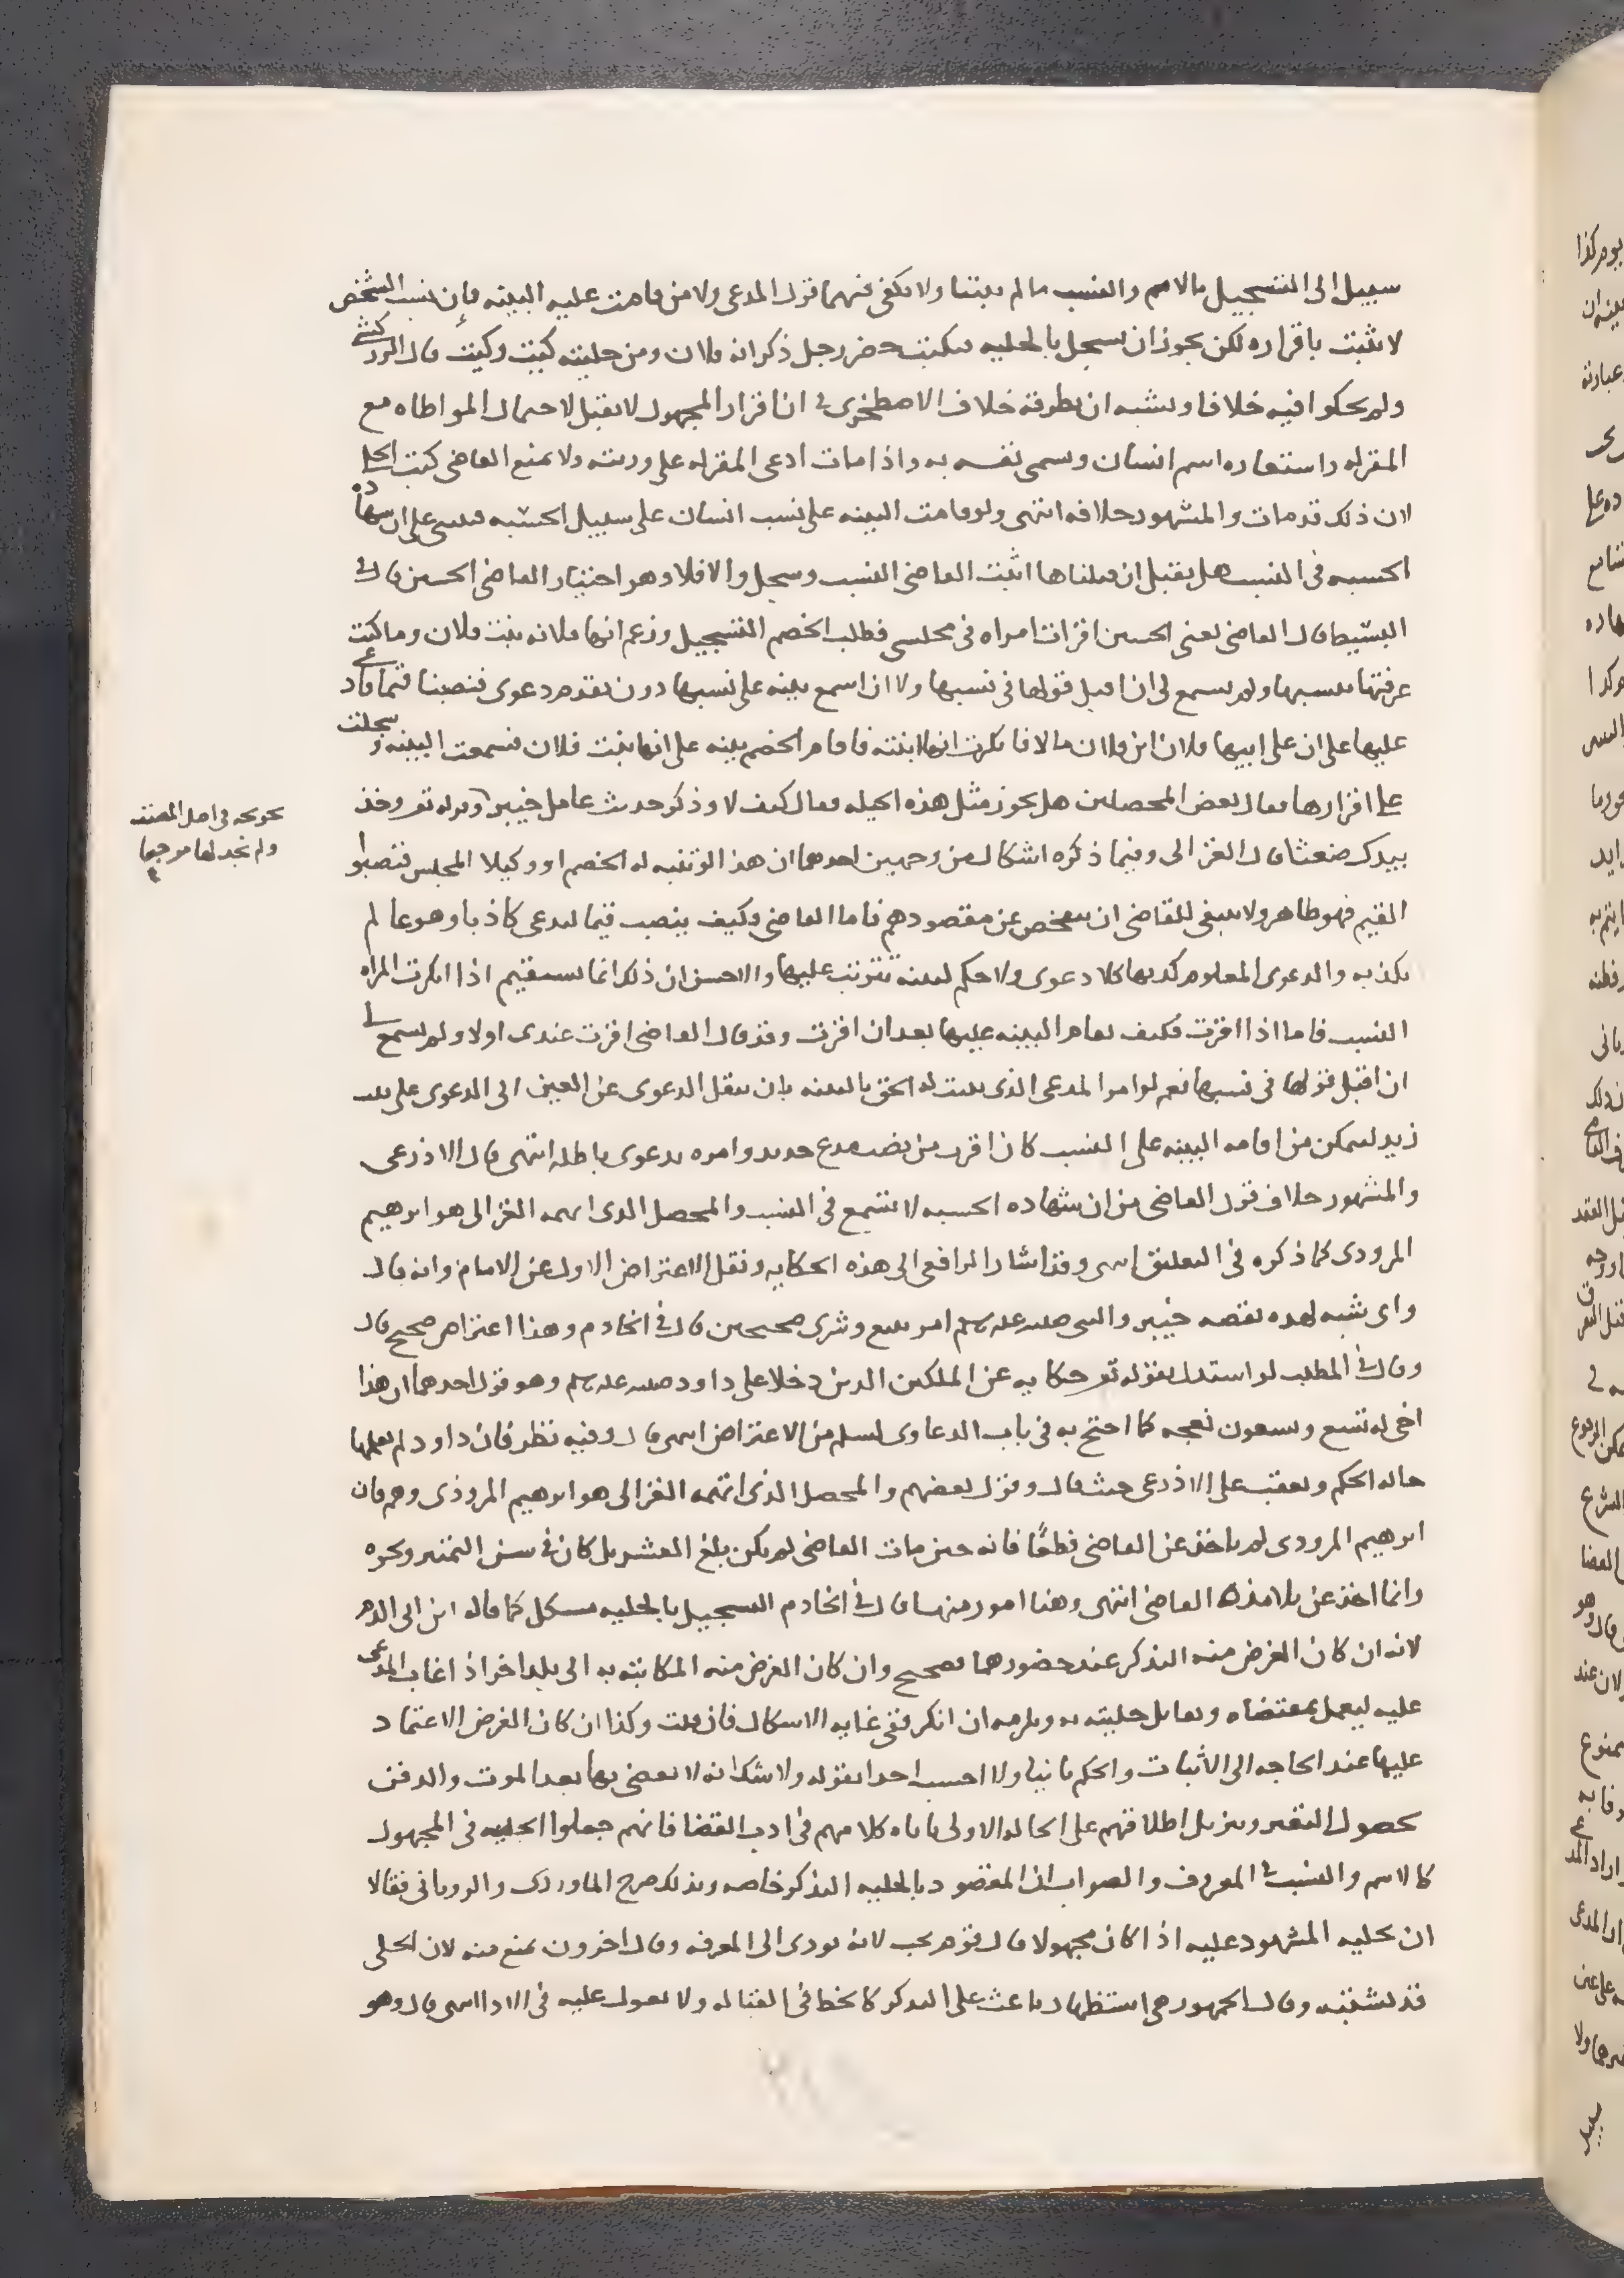 سبيل الى التسجيل بالاسم والنسب ما لم يثبتا ولا يكفى فيهما قول المدعى ولا من قامت عليه البينه فإن نسب الشخص
لا يثبت باقراره لكن يجوز ان يسجل بالحليه فيكتب حضر رجل ذكر انه فلان ومن حليته كيت وكيت قال الزركشى
ولم يحكوا فيه خلافا ويشبه ان يطرقه خلاف الاصطخرى فى ان اقرار المجهول لا يقبل لاحتمال المواطاه مع
المقر له واستعاره اسم انسان وسمى نفسه به واذا مات ادعى المقر له على ورثته ولا يمنع القاضى كتب الحلى
لان ذلك قد مات والمشهور خلافه انتهى ولو قامت البينه على نسب انسان على سبيل الحسبه فينبنى على ان شهاده
الحسبه فى النسب هل يقبل ان قبلناها اثبت القاضى النسب وسجل والا فلا وهو اختيار القاضى الحسين قال فى
البسيط قال القاضى يعنى الحسين اقرات امراه فى مجلسى فطلب الخصم التسجيل وزعم انها فلانه بنت فلان وما كنت
عرفتها بنسبها ولم يسمع لى ان اقبل قولها فى نسبها ولا ان اسمع بينه على نسبها دون تقدم دعوى فنصبنا قيما فادعى
عليها على ان على ابيها فلان ابن فلان مالا فانكرت انها ابنته فاقام الخصم بينه على انها بنت فلان فسمعت البينه وسجلت
على اقرارها فقال بعض المحصلين هل يجوز مثل هذه الحيله فقال كيف لا وذكر حديث عامل خيبر وقوله تع وخذ
بيدك ضغثا قال الغزالى وفيما ذكره اشكال من وجهين احدهما ان هذا لو تنبه له الخصم او وكيلا المجلس فنصبوا
القيم فهو ظاهر ولا ينبغى للقاضى ان يفحص عن مقصودهم فاما القاضى وكيف ينصب قيما ليدعى كاذبا وهو عالم
بكذبه والدعوى المعلوم كذبها كلا دعوى ولا حكم لبينه تترتب عليها والاحسن ان ذلك انما يستقيم اذا انكرت المراه
النسب فاما اذا اقرت فكيف تقام البينه عليها بعد ان اقرت وقد قال القاضى اقرت عندى اولا ولم يسمع لى
ان اقبل قولها فى نسبها نعم لو امر المدعى الذى يثبت له الحق بالبينه بان ينقل الدعوى عن العين الى الدعوى على بنت
زيد ليتمكن من اقامه البينه على النسب كان اقرب من نصب مدع جديد وامره بدعوى باطله انتهى قال الاذرعى
والمشهور خلاف قول القاضى من ان شهاده الحسبه لا تسمع فى النسب والمحصل الذى ابهمه الغزالى هو ابرهيم
المرودى كما ذكره فى التعليق انتهى وقد اشار الرافعى الى هذه الحكايه ونقل الاعتراض الاول عن الامام وانه قال
واى شبه لهذه بقصه خيبر والنبى صلى الله عليه وسلم امر ببيع وشرى صحيحين قال فى الخادم وهذا اعتراض صحيح قال
وقال فى المطلب لو استدل بقوله تع حكايه عن الملكين الذين دخلا على داود صلى الله عليه وسلم وهو قول احدهما ان هذا
اخى له تسع وتسعون نعجه كما احتج به فى باب الدعاوى لسلم من الاعتراض انتهى قال وفيه نظر فان داود لم يعلمها
حاله الحكم وتعقب على الاذرعى حيث قال وقول بعضهم والمحصل الذى اتهمه الغزالى هو ابرهيم المروذى وهم فان
ابرهيم المرودى لم ياخذ عن القاضى قطعًا فانه حين مات القاضى لم يكن بلغ العشر بل كان فى سن التمييز ونحوه
وانما اخذ عن تلامذه القاضى انتهى وهنا امور منها قال فى الخادم التسجيل بالحليه مشكل كما قاله ابن ابى الدم
لانه ان كان الغرض منه التذكر عند حضورهما فصحيح وان كان الغرض منه المكاتبه به الى بلد اخر اذا غاب المدعى
عليه ليعمل بمقتضاه ويقابل حليته به ويلزمه ان انكر ففى غايه الاشكال فان قلت وكذا ان كان الغرض الاعتماد
عليها عند الحاجه الى الاثبات والحكم ثانيا ولا احسب احدا يقوله ولا شك انه لا يقضى بها بعد الموت والدفن
بحصول التغير وتنزيل اطلاقهم على الحاله الاولى ياباه كلامهم فى ادب القضا فانهم جعلوا الحليه فى المجهول
كالاسم والنسب فى المعروف والصواب ان المقصود بالحليه التذكر خاصه وبذلك صرح الماوردى والرويانى فقالا
ان تحليه المشهود عليه اذا كان مجهولا قال قوم يجب لانه يودى الى المعرفه وقال اخرون يمنع منه لان الحلى
قد تشتبه وقال الجمهور هى استظهار باعث على التذكر كالخط فى القباله ولا يعول عليه فى الادا انتهى قال وهو
ولم نجد لها مرجعا